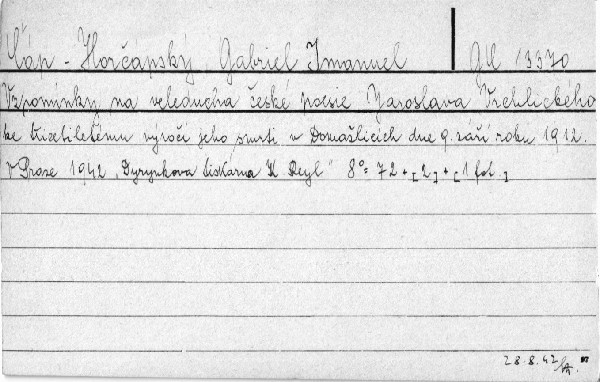 Čáp-Horčápský, Gabriel Imanuel GU 13370
Vzpomínky na veleducha české poesie Jaroslava Vrchlického
ke třicetiletému výročí jeho smrti v Domažlicích dne 9. září roku 1912.
V Praze 1942 „Dyrynkova tiskárna K. Reyl" 8° 72 + [2] + [1 fot.]
28.8.42